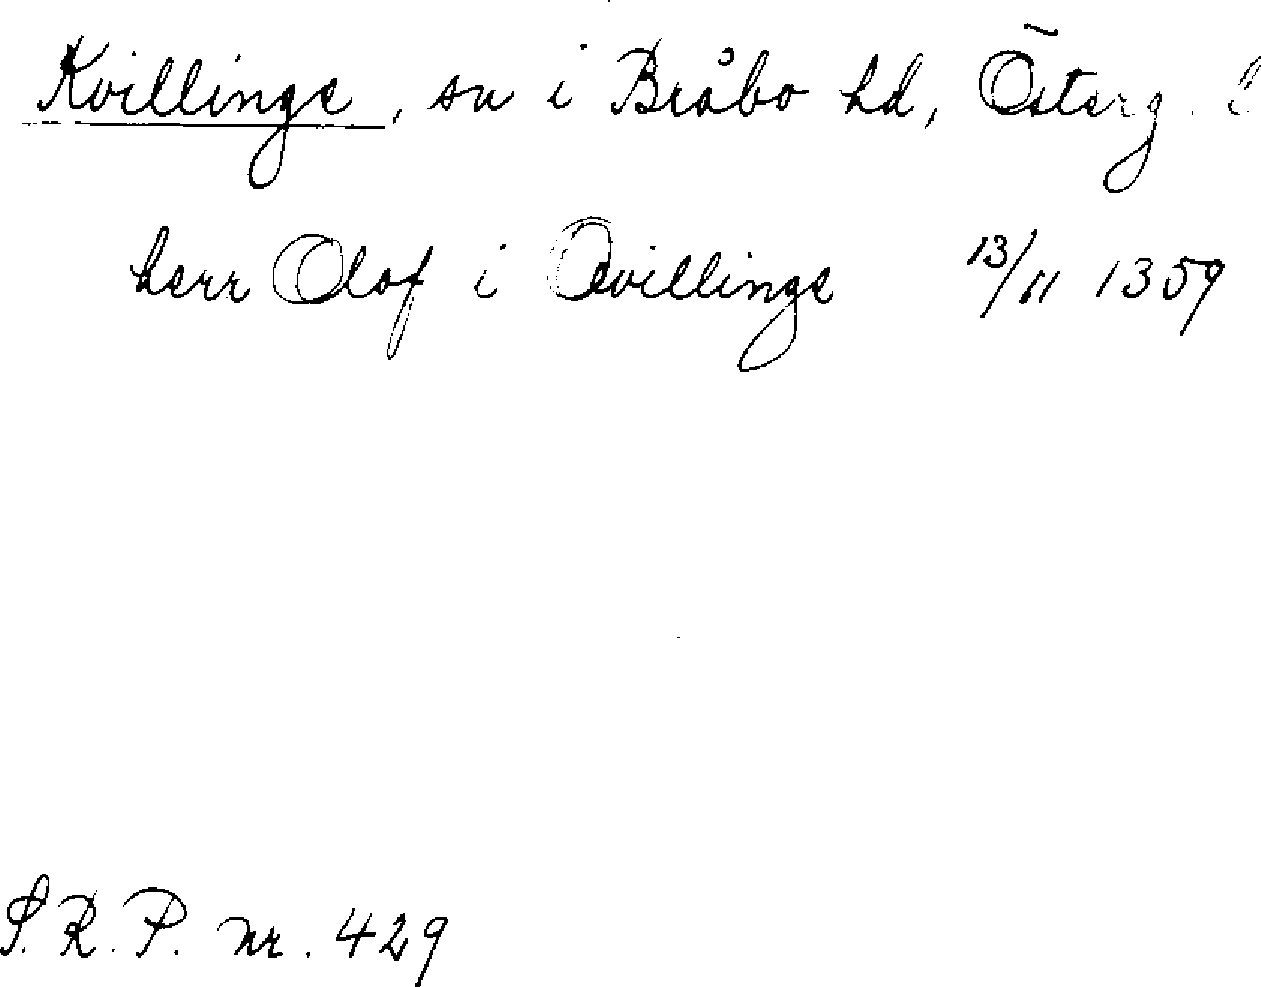 Kvillinge, sn i Bråbo hd, Österg. l
herr Olof i Qvillinge 13/11 1359
S.R.P. nr. 429